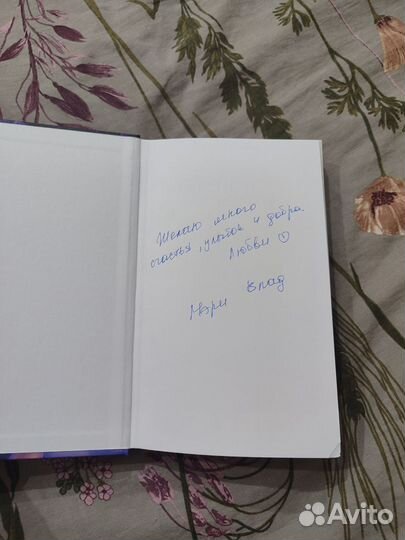 Желаю много
счастья, улыбок и добра
Любви
Мэри Влад
Avito